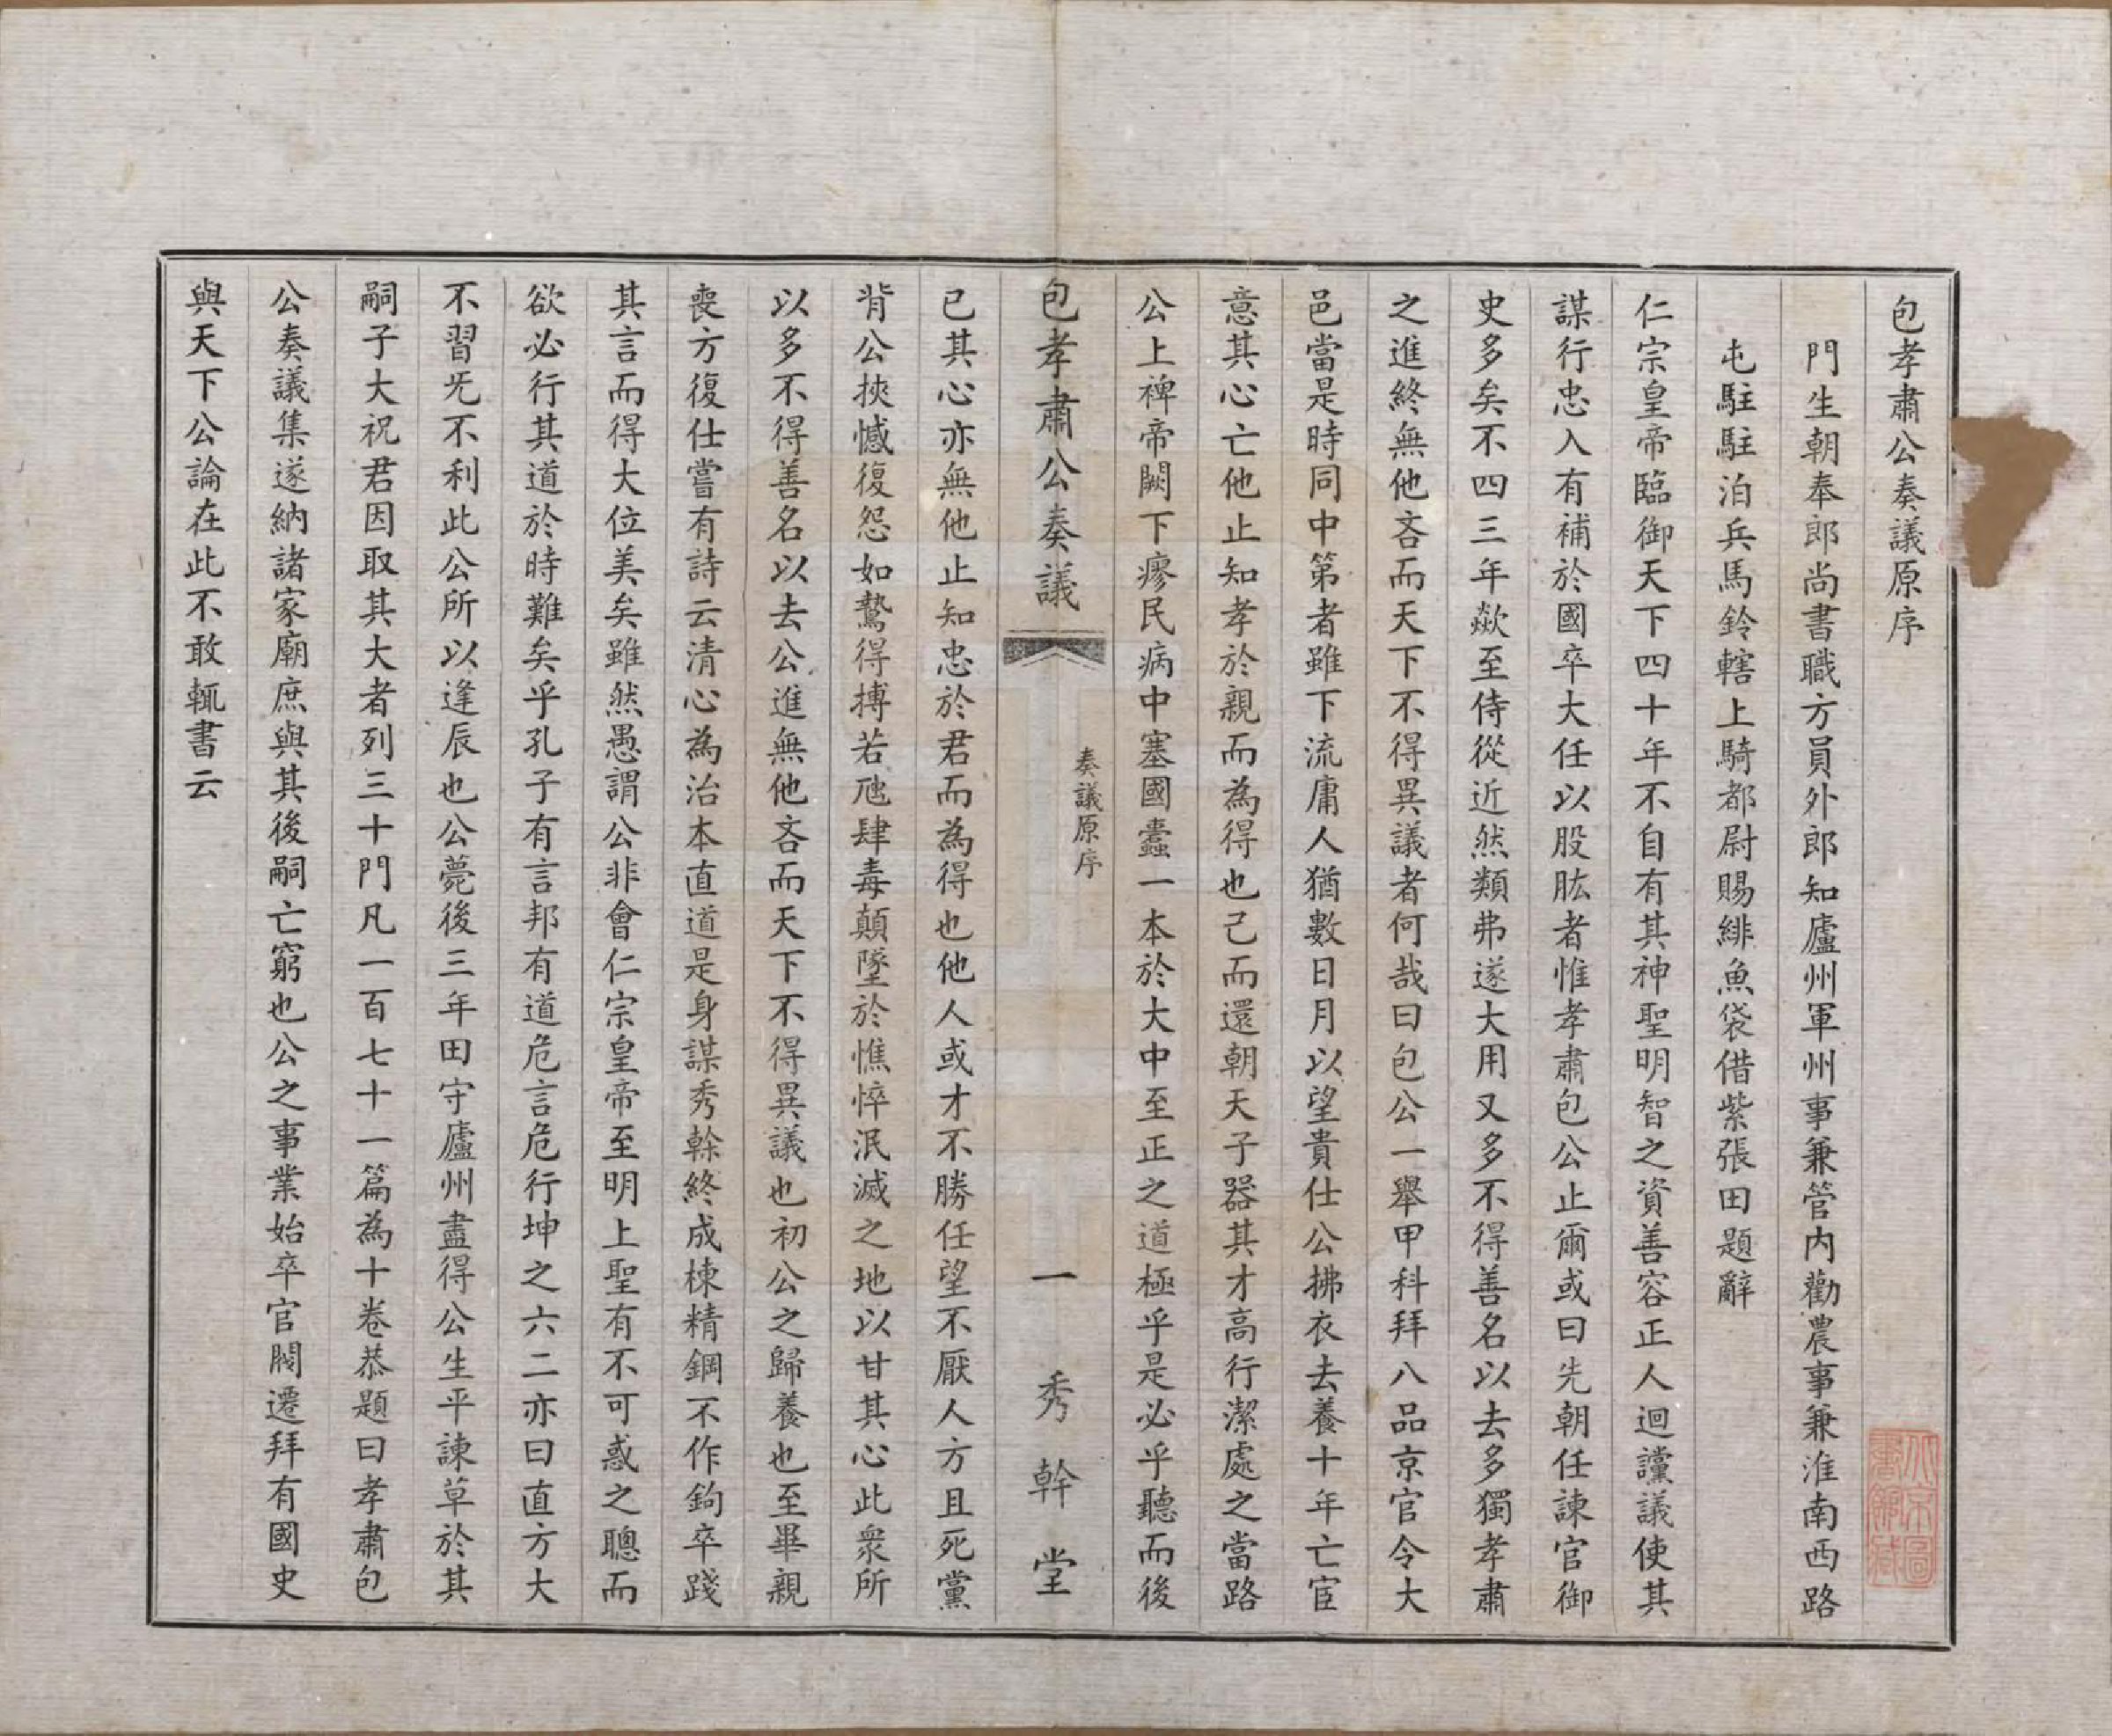 包孝肅公奏議原序
門生朝奉郎尚書職方員外郎知廬州軍州事兼管內勸農事兼淮南西路
屯駐駐泊兵馬鈐轄上騎都尉賜緋魚袋借紫張田題辭
仁宗皇帝臨御天下四十年不自有其神聖明智之資善容正人迴讜議使其
謀行忠入有補於國卒大任以股肱者惟孝肅包公止爾或曰先朝任諫官御
史多矣不四三年歘至侍從近然類弗遂大用又多不得善名以去多獨孝肅
之進終無他吝而天下不得異議者何哉曰包公一舉甲科拜八品京官令大
邑當是時同中第者雖下流庸人猶數日月以望貴仕公拂衣去養十年亡宦
意其心亡他止知孝於親而為得也已而還朝天子器其才高行潔處之當路
公上裨帝闕下瘳民病中塞國蠹一本於大中至正之道極乎是必乎聽而後
包孝肅公奏議
奏議原序
一
秀幹堂
已其心亦無他止知忠於君而為得也他人或才不勝任望不厭人方且死黨
背公挾憾復怨如鷙得搏若虺肆毒顛墜於憔悴泯滅之地以甘其心此衆所
以多不得善名以去公進無他吝而天下不得異議也初公之歸養也至畢親
喪方復仕嘗有詩云清心為治本直道是身謀秀榦終成棟精鋼不作鉤卒踐
其言而得大位美矣雖然愚謂公非會仁宗皇帝至明上聖有不可惑之聰而
欲必行其道於時難矣乎孔子有言邦有道危言危行坤之六二亦曰直方大
不習旡不利此公所以逢辰也公薨後三年田守廬州盡得公生平諫草於其
嗣子大祝君因取其大者列三十門凡一百七十一篇為十卷恭題曰孝肅包
公奏議集遂納諸家廟庶與其後嗣亡窮也公之事業始卒官閥遷拜有國史
與天下公論在此不敢輒書云